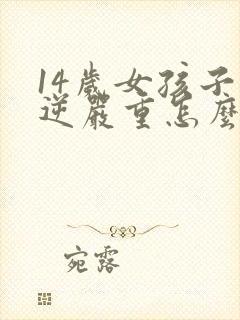 14歲女孩子
逆嚴重怎麼
宛露